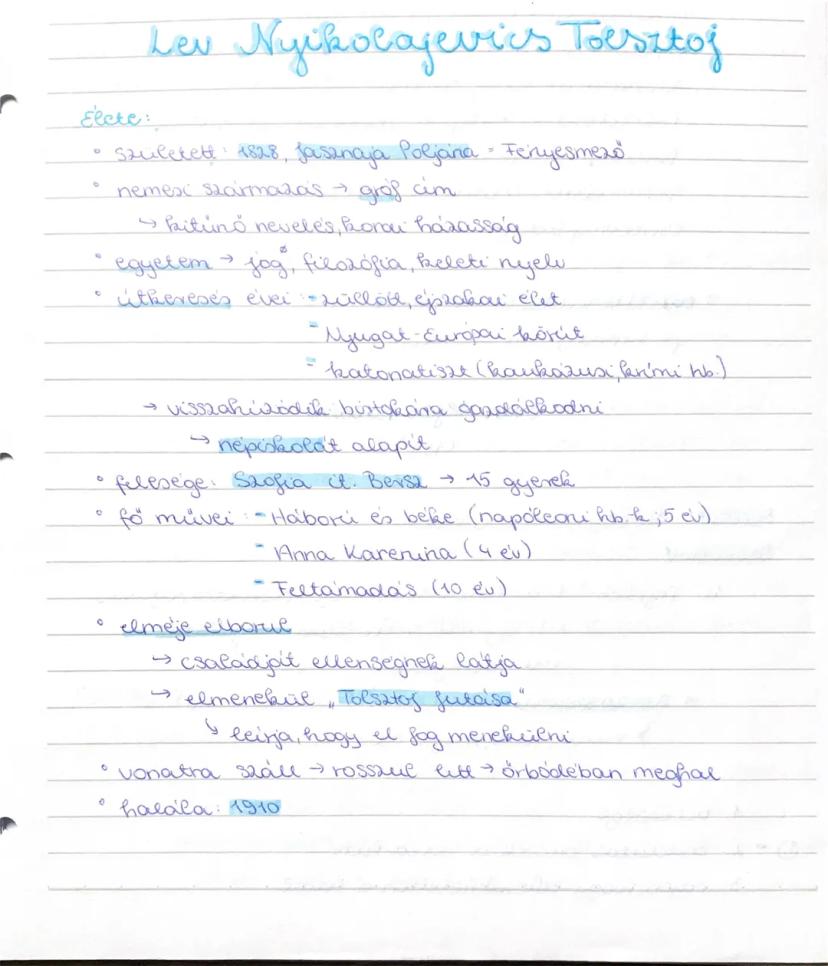 Lev Nyikolajevics Tolsztoj
Élete:
• született: 1828, Jasznaja Poljana = Fényesmező
• nemesi származás → gróf cím
↳ kitűnő nevelés, korai házasság
• egyetem → jog, filozófia, keleti nyelv
• útkeresés évei: - züllött, éjszakai élet
- Nyugat-Európai körút
- katonatiszt (kaukázusi, krími hb.)
→ visszahúzódik birtokára gazdálkodni
→ népiskolát alapít
• felesége: Szofia A. Bersz → 15 gyerek
• fő művei: - Háború és béke (napóleoni hb.-k; 5 év)
- Anna Karenina (4 év)
- Feltámadás (10 év)
• elméje elborul
→ családját ellenségnek látja
→ elmenekül „Tolsztoj futása"
↳ leírja, hogy el fog menekülni
• vonatra száll → rosszul lett → őrbódéban meghal
• halála: 1910